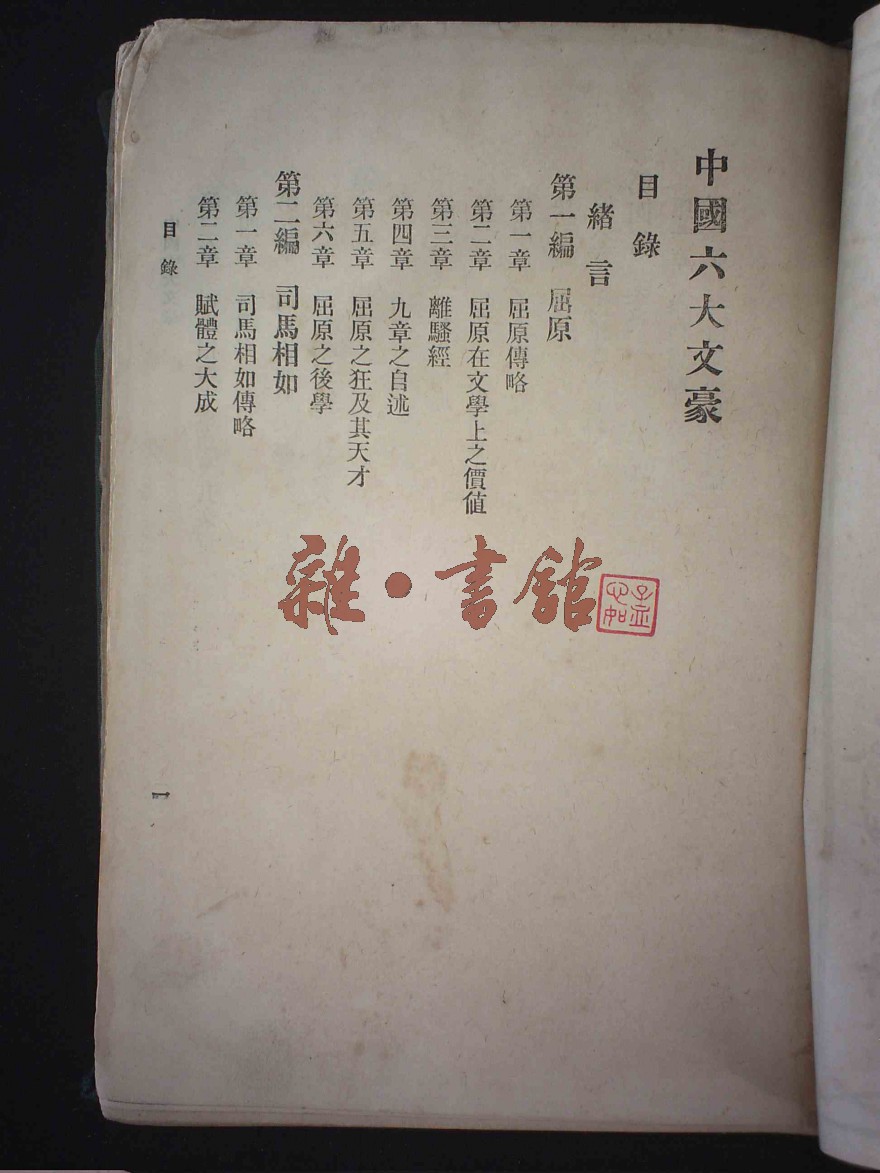 中國六大文豪
目錄
緒言
第一編 屈原
第一章 屈原傳略
第二章 屈原在文學上之價值
第三章 離騷經
第四章 九章之自述
第五章 屈原之狂及其天才
第六章 屈原之後學
第二編 司馬相如
第一章 司馬相如傳略
第二章 賦體之大成
目錄
一
雜·書館